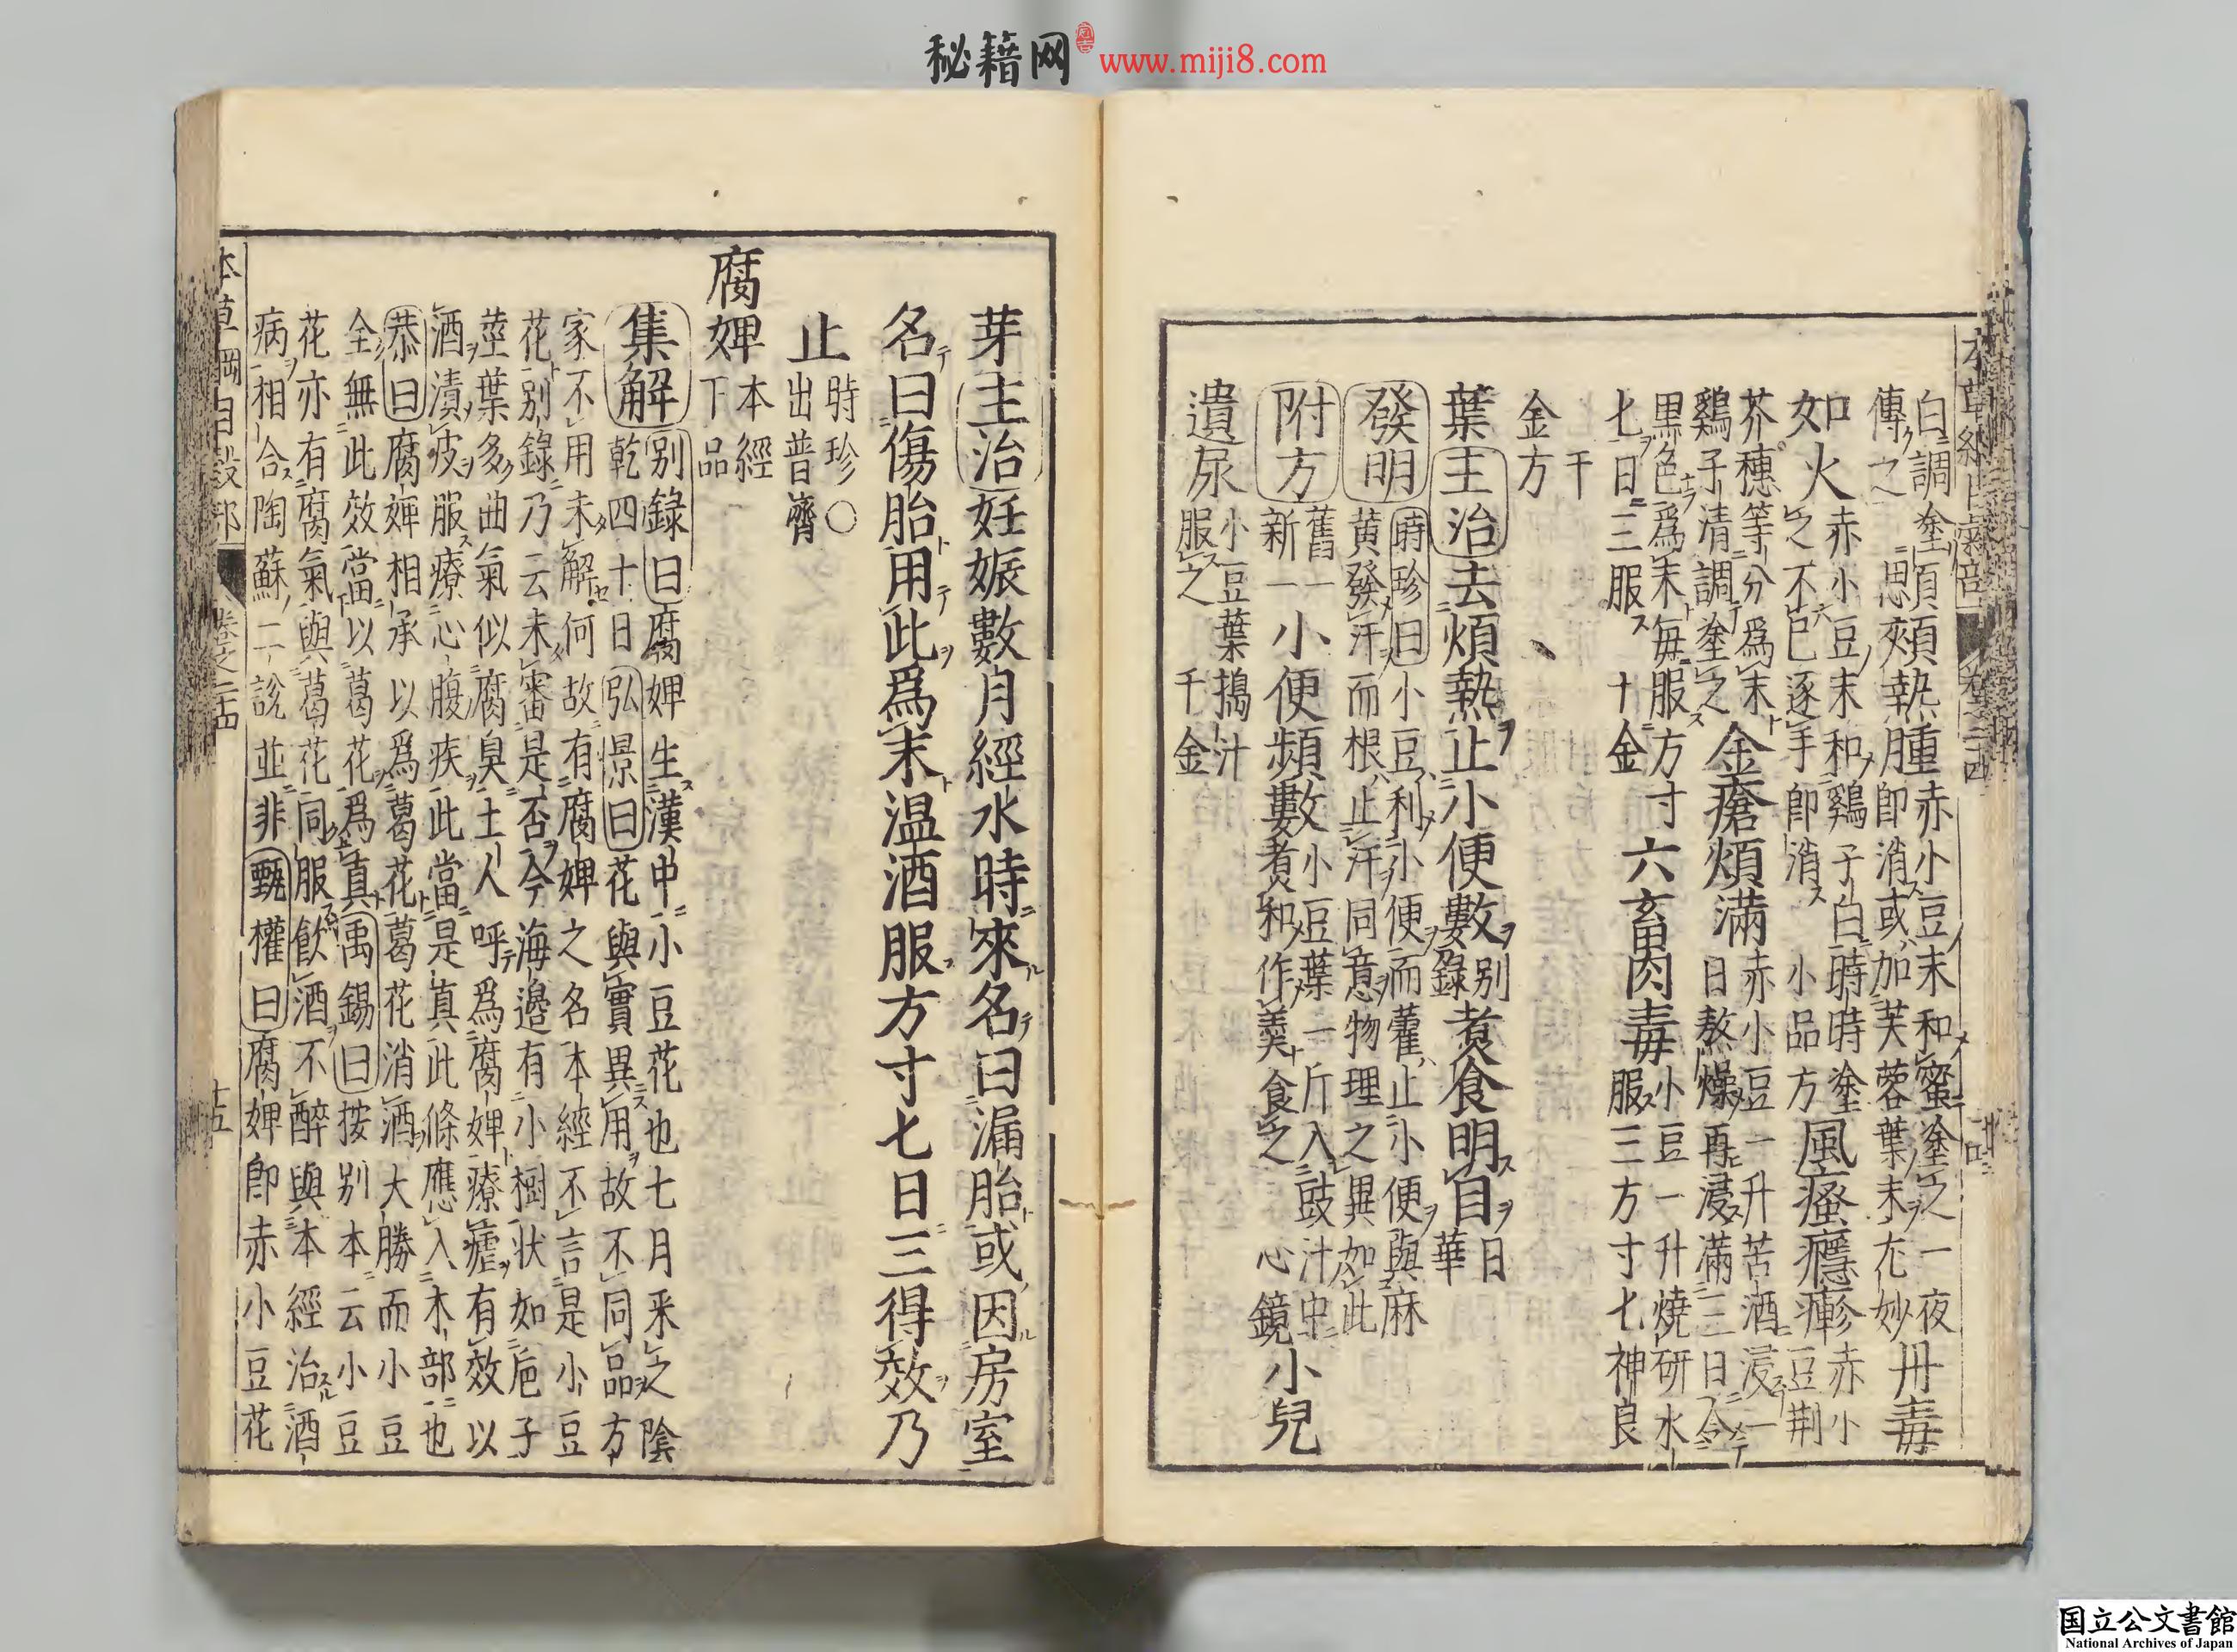 秘籍网 www.miji8.com
白調塗
傳之
腮頬熱腫
赤小豆末和蜜塗之一夜
即消或加芙蓉葉末尤妙
丹毒
如火
赤小豆末和鷄子白時時塗
之不已逐手即消 小品方
風瘙癮疹
赤小豆荆
芥穗等分爲末
鷄子清調塗之
金瘡煩滿
赤小豆一升苦酒浸一
日熬燥再浸滿三日令
黒色爲末毎服方寸
七日三服 千金
六畜肉毒
小豆一升燒研水
服三方寸七神良
千
金方
葉主治去煩熱止小便數別錄煮食明目日華
發明
時珍曰小豆利小便而藿止小便與麻
黄發汗而根止汗同意物理之異如此
附方
舊一
新一
小便頻數
小豆葉一斤入豉汁中
煮和作羹食之 心鏡
小兒
遺尿
小豆葉搗汁
服之 千金
芽主治妊娠數月經水時來名曰漏胎或因房室
名曰傷胎用此爲末温酒服方寸七日三得效乃
止
時珍○
出普濟
腐婢
本經
下品
集解
別錄曰腐婢生漢中小豆花也七月采之陰
乾四十日弘景曰花與實異用故不同品方
家不用未解何故有腐婢之名本經不言是小豆
花別錄乃云未審是否今海邊有小樹狀如巵子
莖葉多曲氣似腐臭土人呼爲腐婢療瘧有效以
酒漬皮服療心腹疾此當是真此條應入木部也
恭曰腐婢相承以爲葛花葛花消酒大勝而小豆
全無此效當以葛花爲真禹錫曰按別本云小豆
花亦有腐氣與葛花同服飲酒不醉與本經治酒
病相合陶蘇二說並非甄權曰腐婢即赤小豆花
本草綱目穀部 卷之二十四 十五
国立公文書館
National Archives of Japan